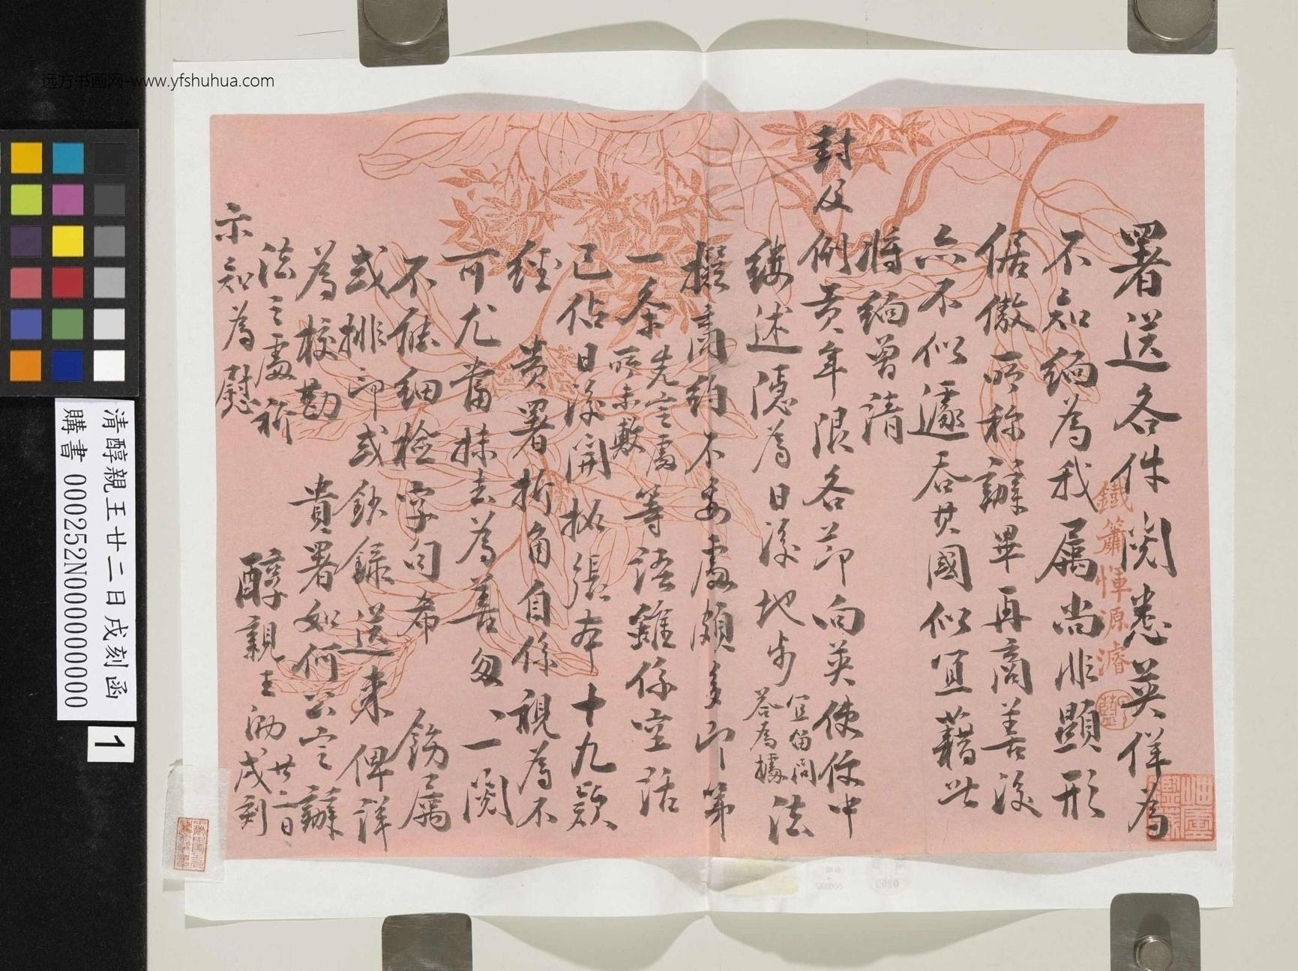 远方书画网-www.yfshuhua.com
署送各件閱悉英佯為
不知緬為我屬尚非顯形
倨傲所稱辦畢再商善後
亦不似遽吞其國似宜藉此
將緬曾請
封及例貢年限各節向英使中法
縷述隱為日後地步宜留問答為據
擬商約不妥處頗多即第
一条先定處所未敷等語雖係空話
已佔日後開拓張本十九款
經 貴署折角自係視為不
可尤當抹去為善匆匆一閱
不能細檢字句希 飭屬
或排印或鈔錄送來俾詳
為校勘 貴署如何公定辦
法之處祈
示知為慰 醇親王泐廿二日戌刻
鐵簫惲源濬
清醇親王廿二日戌刻函
購書 000252N000000000000
1